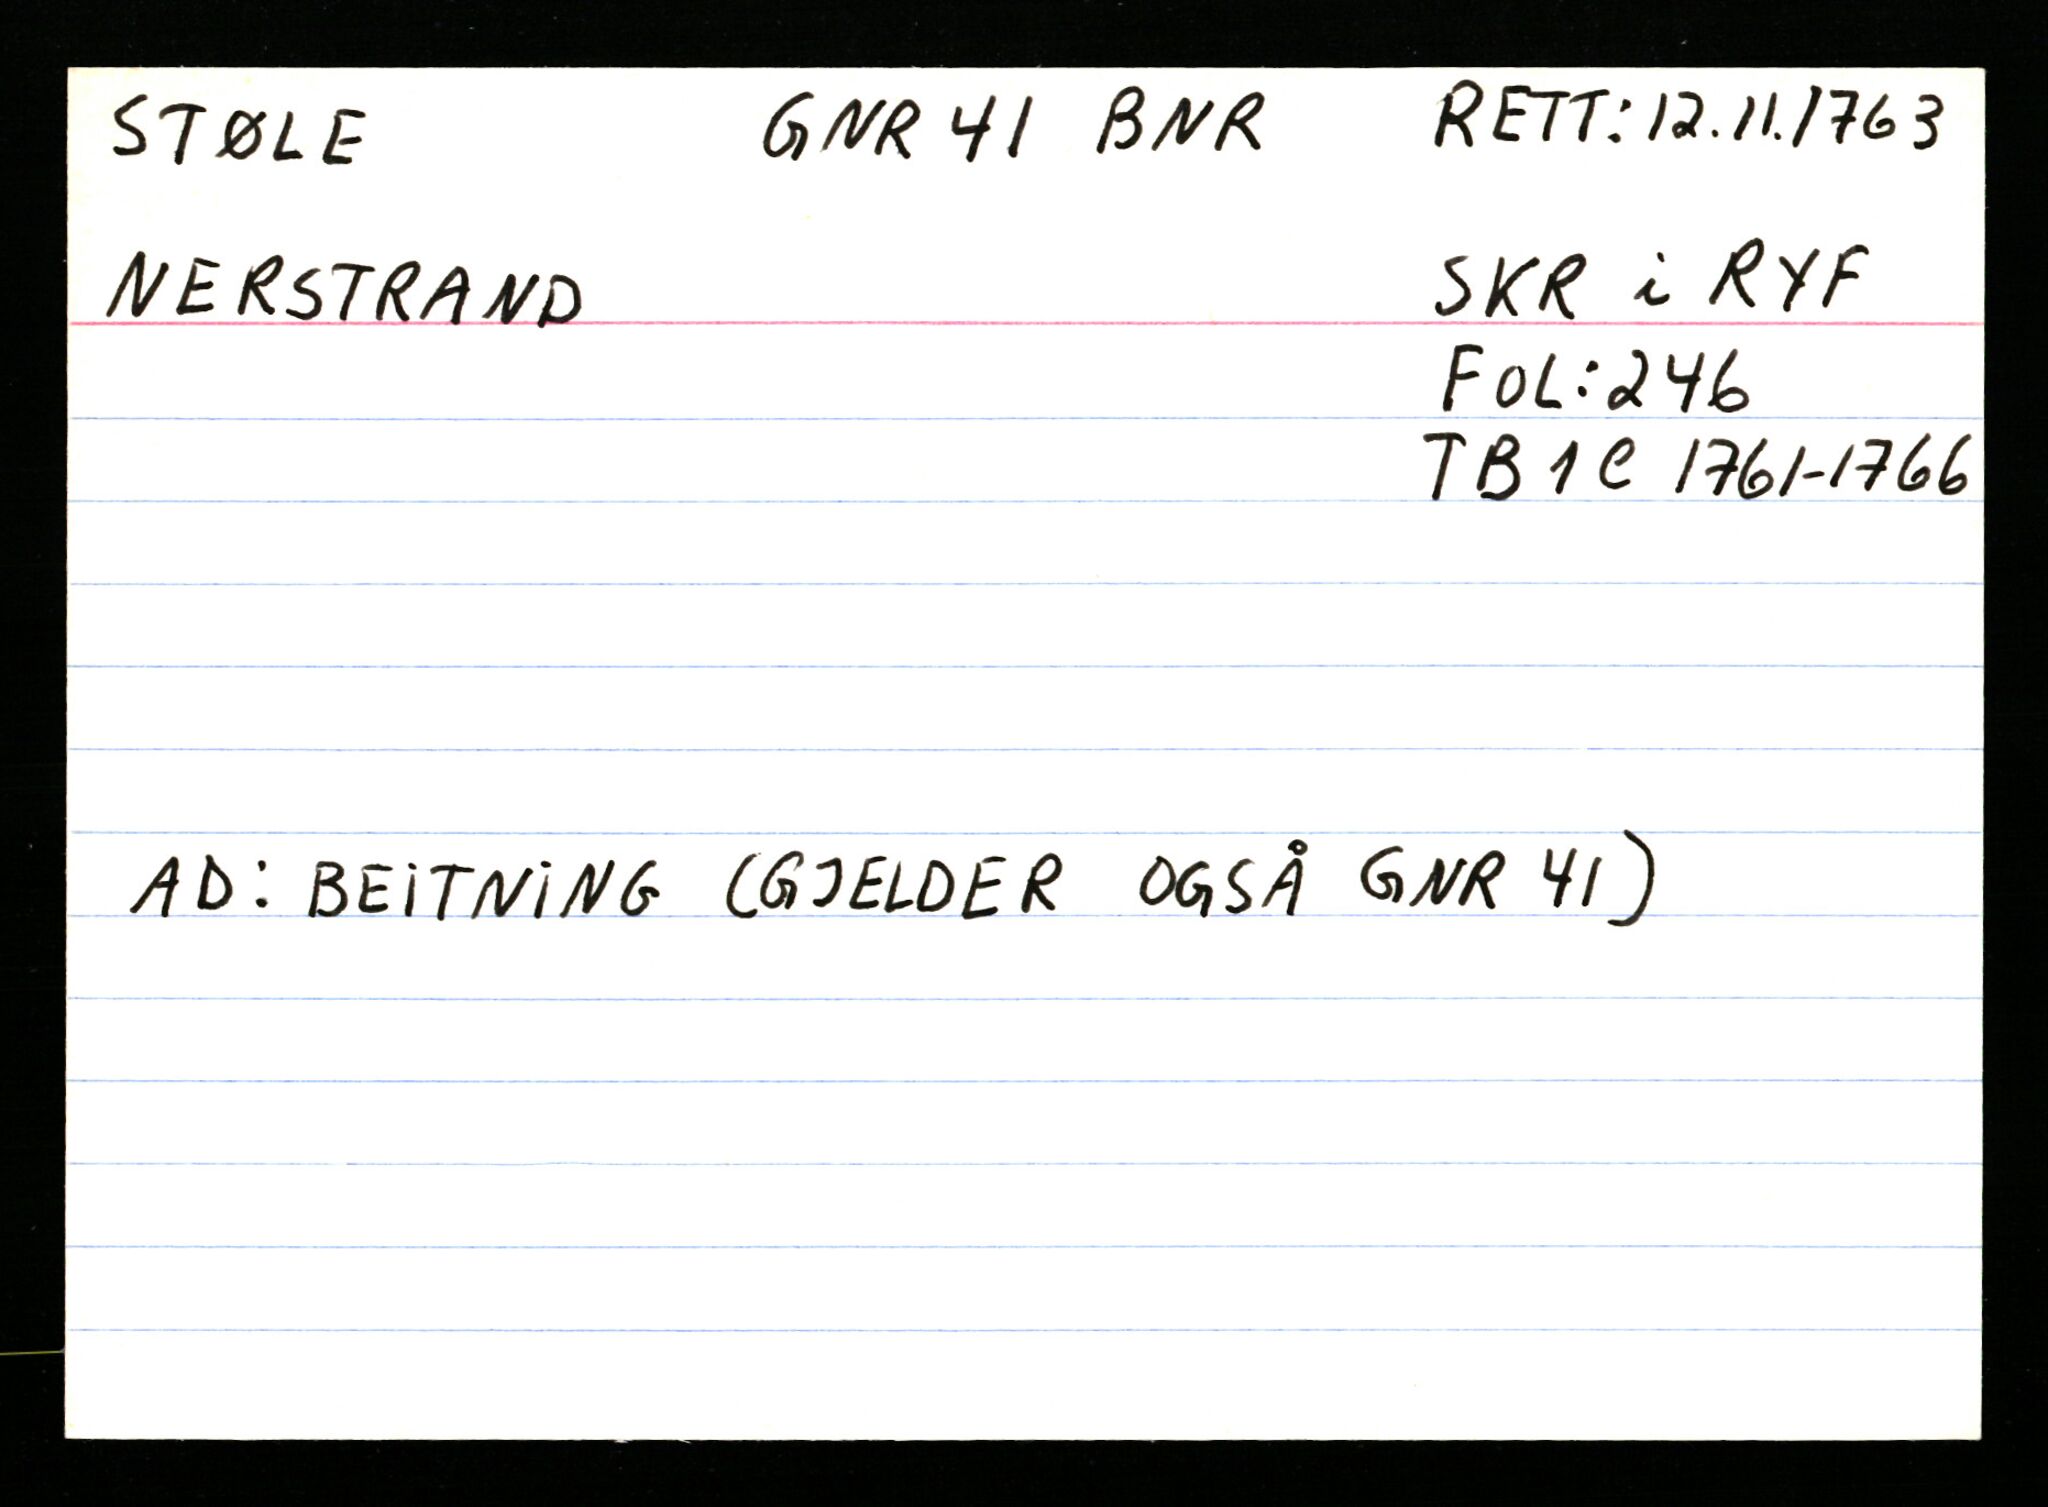 STØLE GNR 41 BNR RETT: 12.11.1763
NERSTRAND SKR i RYF
FOL: 246
TB 1 C 1761-1766
AD: BEITNING (GJELDER OGSÅ GNR 41)